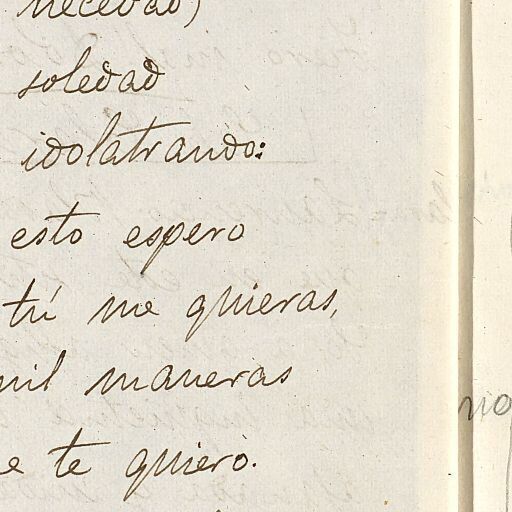 necedad)
soledad
idolatrando:
esto espero
tú me quieras,
mil maneras
te quiero.
no